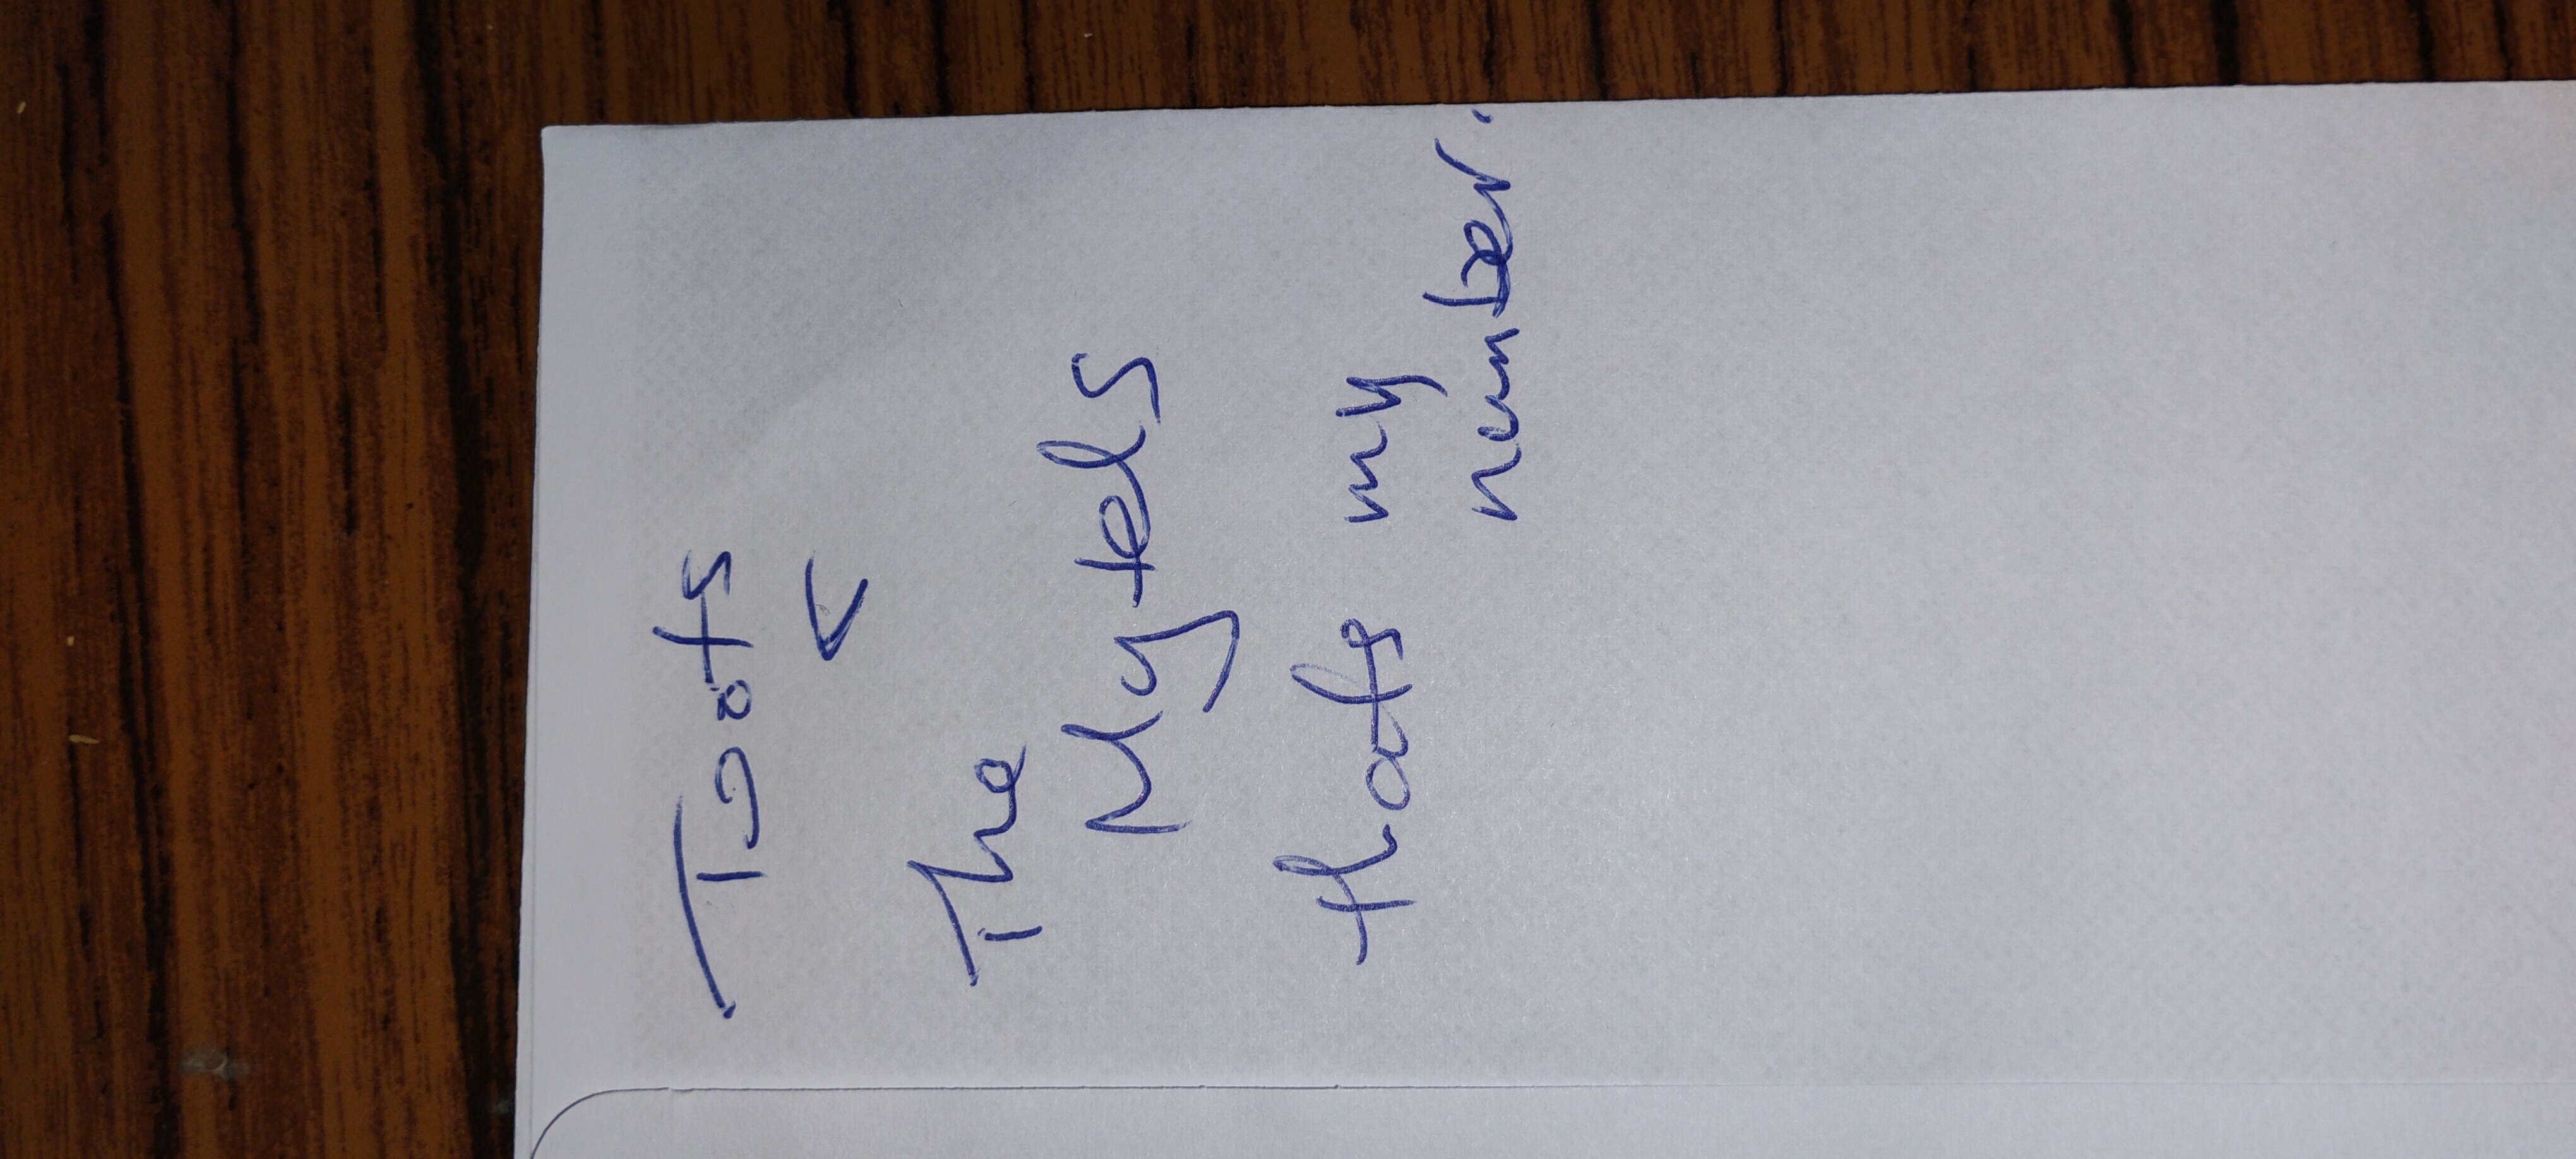 Toots
&
The
Maytels
thats my
number.